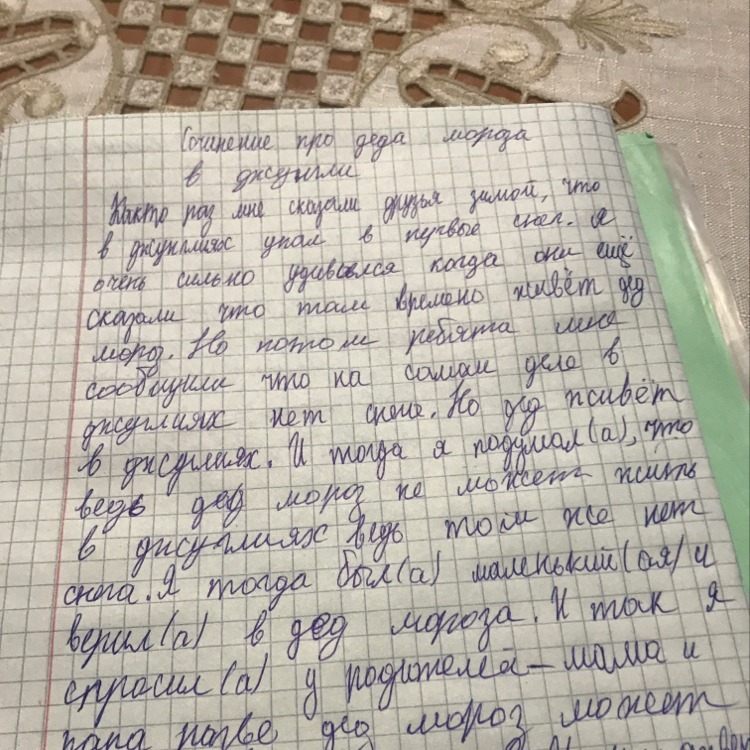 Сочинение про деда мороза
в джунгли
Както раз мне сказали друзья зимой, что
в джунглиях упал в первые снег. Я
очень сильно удивился когда они ещё
сказали что там времено живёт дед
мороз. Но потом ребята мне
сообщили что на самам деле в
джуглиях нет снега. Но дед живёт
в джуглиях. И тогда я подумал(а), что
ведь дед мороз не может жить
в джуглиях ведь том же нет
снега. Я тогда был(а) маленький(ая) и
верил(а) в дед мороза. И так я
спросил(а) у родителей – мама и
папа разве дед мороз может